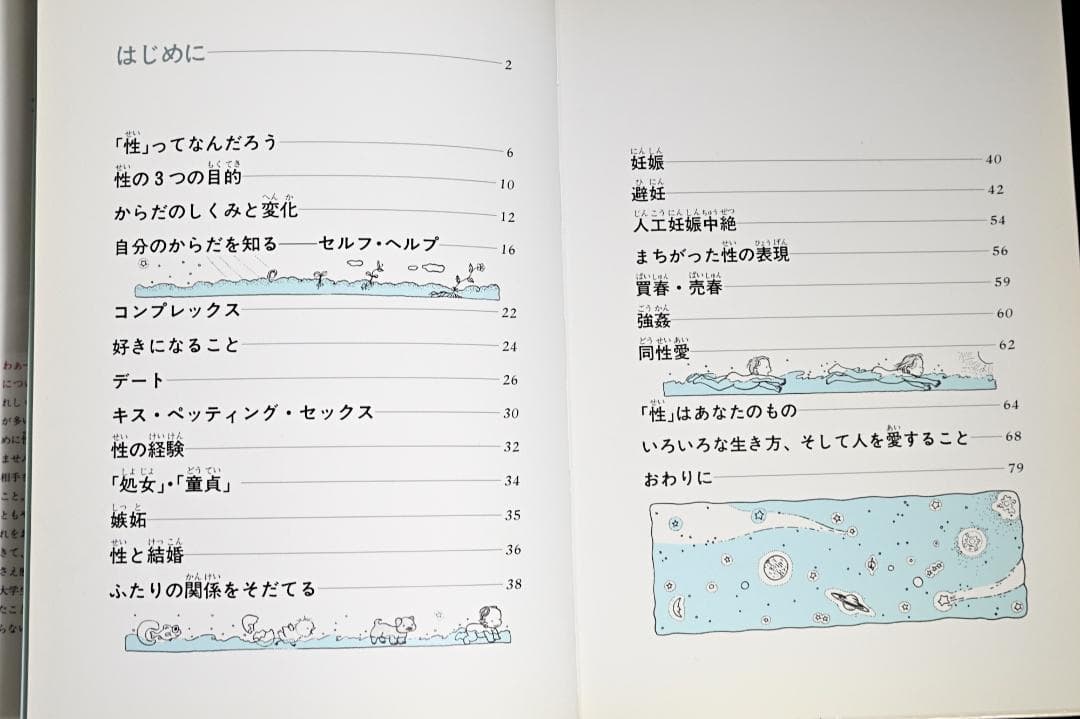 はじめに 2
「性」ってなんだろう 6
性の3つの目的 10
からだのしくみと変化 12
自分のからだを知る――セルフ・ヘルプ 16
コンプレックス 22
好きになること 24
デート 26
キス・ペッティング・セックス 30
性の経験 32
「処女」・「童貞」 34
嫉妬 35
性と結婚 36
ふたりの関係をそだてる 38
妊娠 40
避妊 42
人工妊娠中絶 54
まちがった性の表現 56
買春・売春 59
強姦 60
同性愛 62
「性」はあなたのもの 64
いろいろな生き方、そして人を愛すること 68
おわりに 79